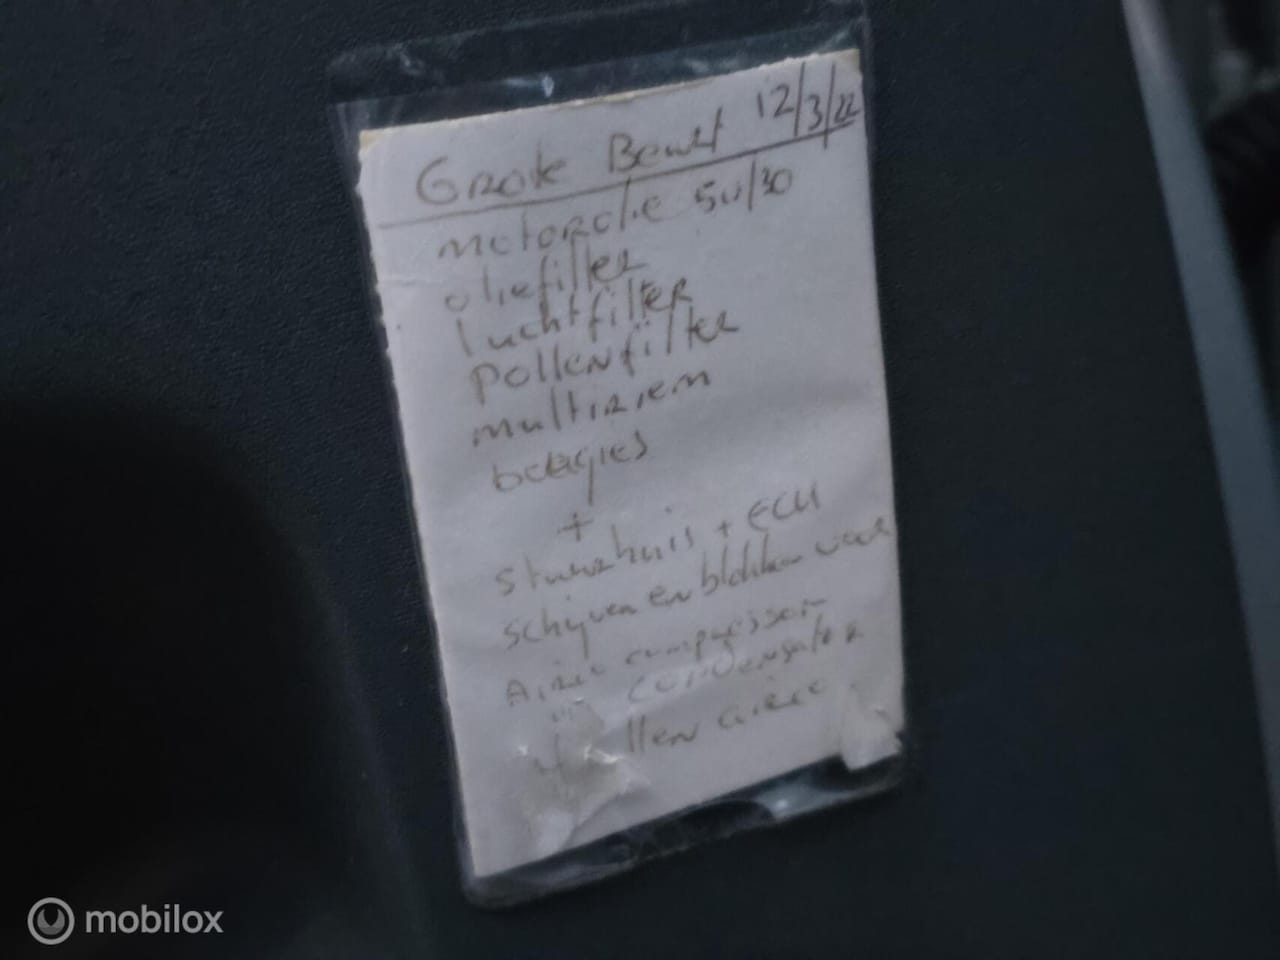 Grote Beurt 12/3/22
motorolie 5w/30
oliefilter
luchtfilter
Pollenfilter
multiriem
+
stuurhuis + ECU
schijven en blokken voor
Airco compressor
condensator
vullen airco
mobilox